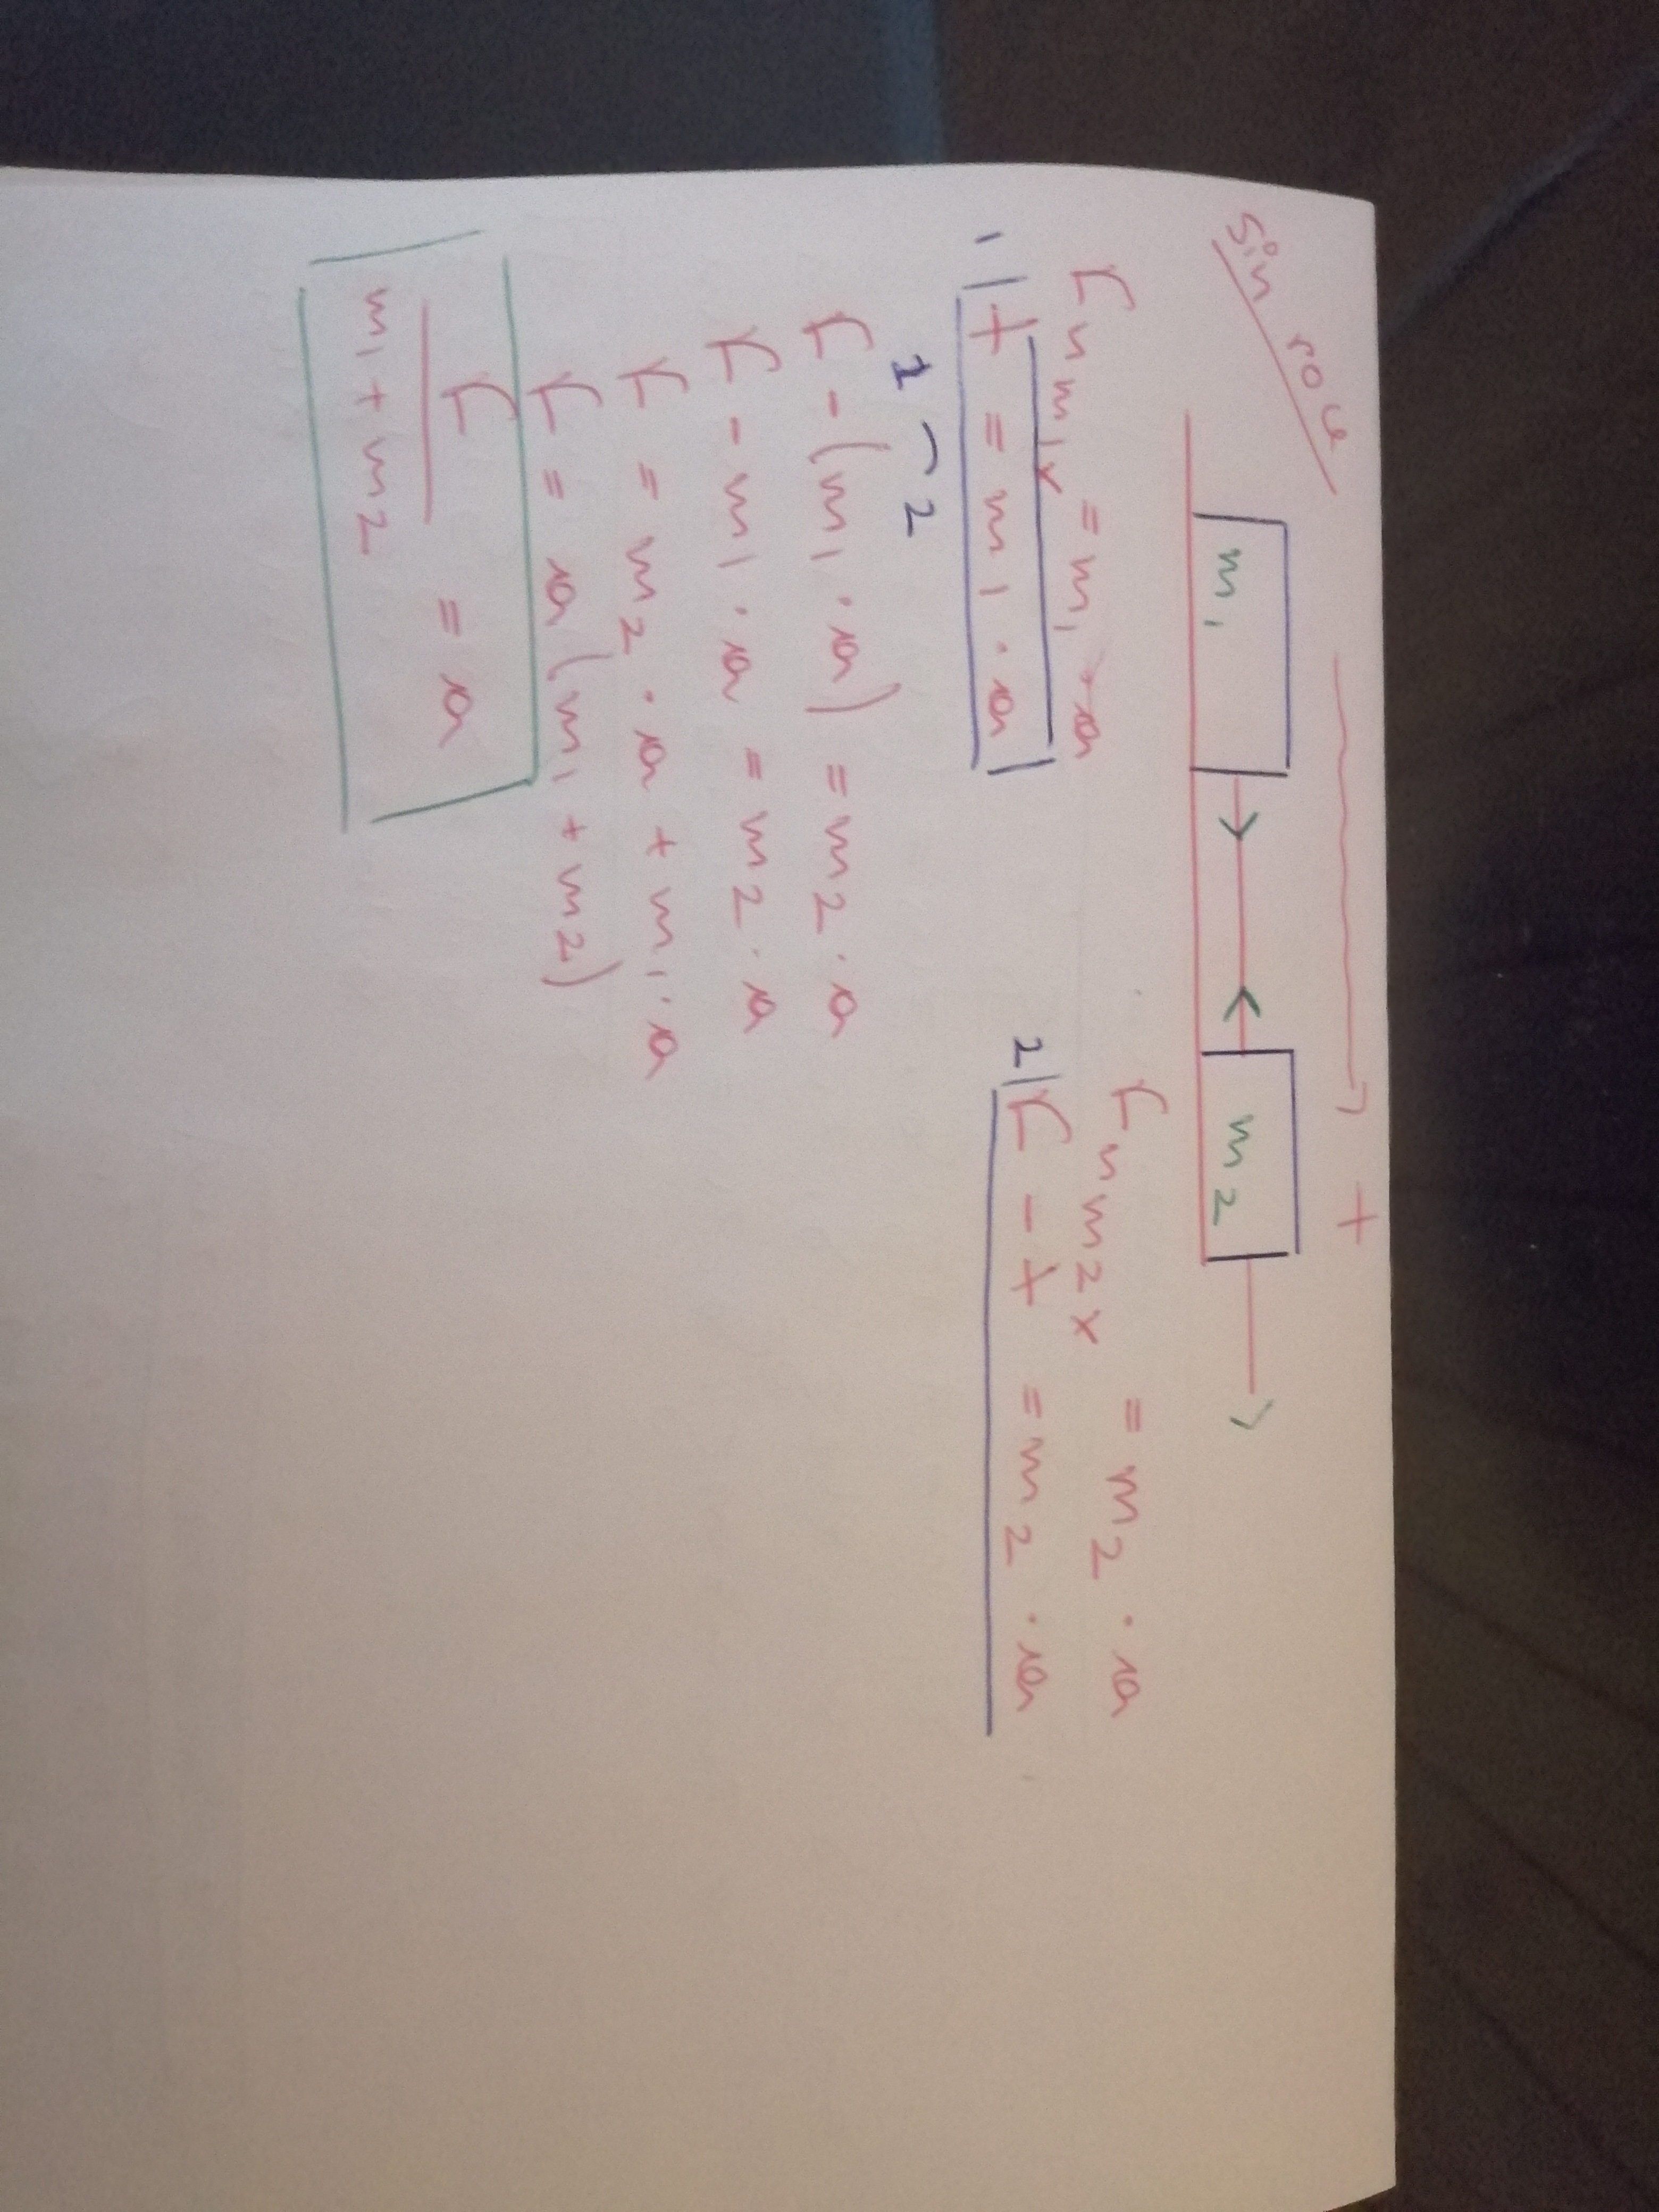 sin roce
+
m₁ m₂
Fn m₁x = m₁·a
Fn m₂x = m₂·a
1| t = m₁·a
2| F - t = m₂·a
1⌒2
F - (m₁·a) = m₂·a
F - m₁·a = m₂·a
F = m₂·a + m₁·a
F = a(m₁ + m₂)
F/(m₁ + m₂) = a